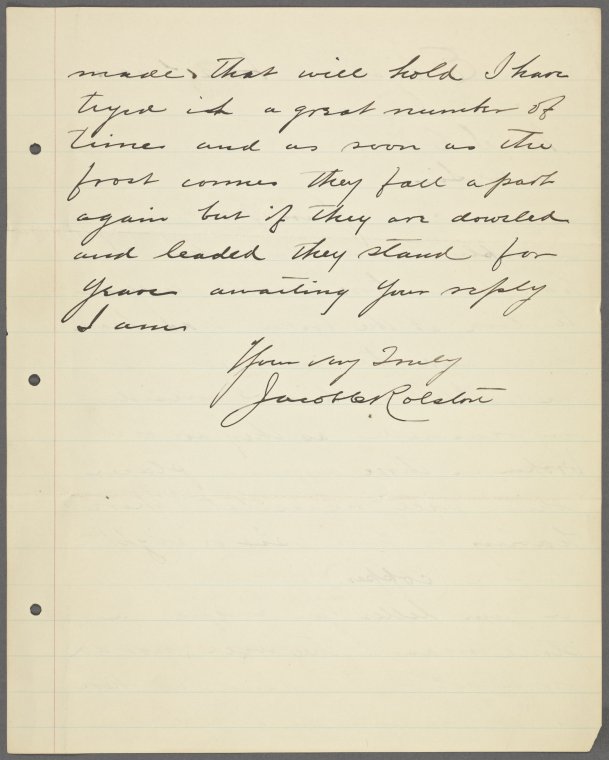 made that will hold I have
tryed it a great number of
times and as soon as the
frost comes they fall apart
again but if they are doweled
and leaded they stand for
years awaiting your reply
I am
Your very Truly
Jacob C. Rolston